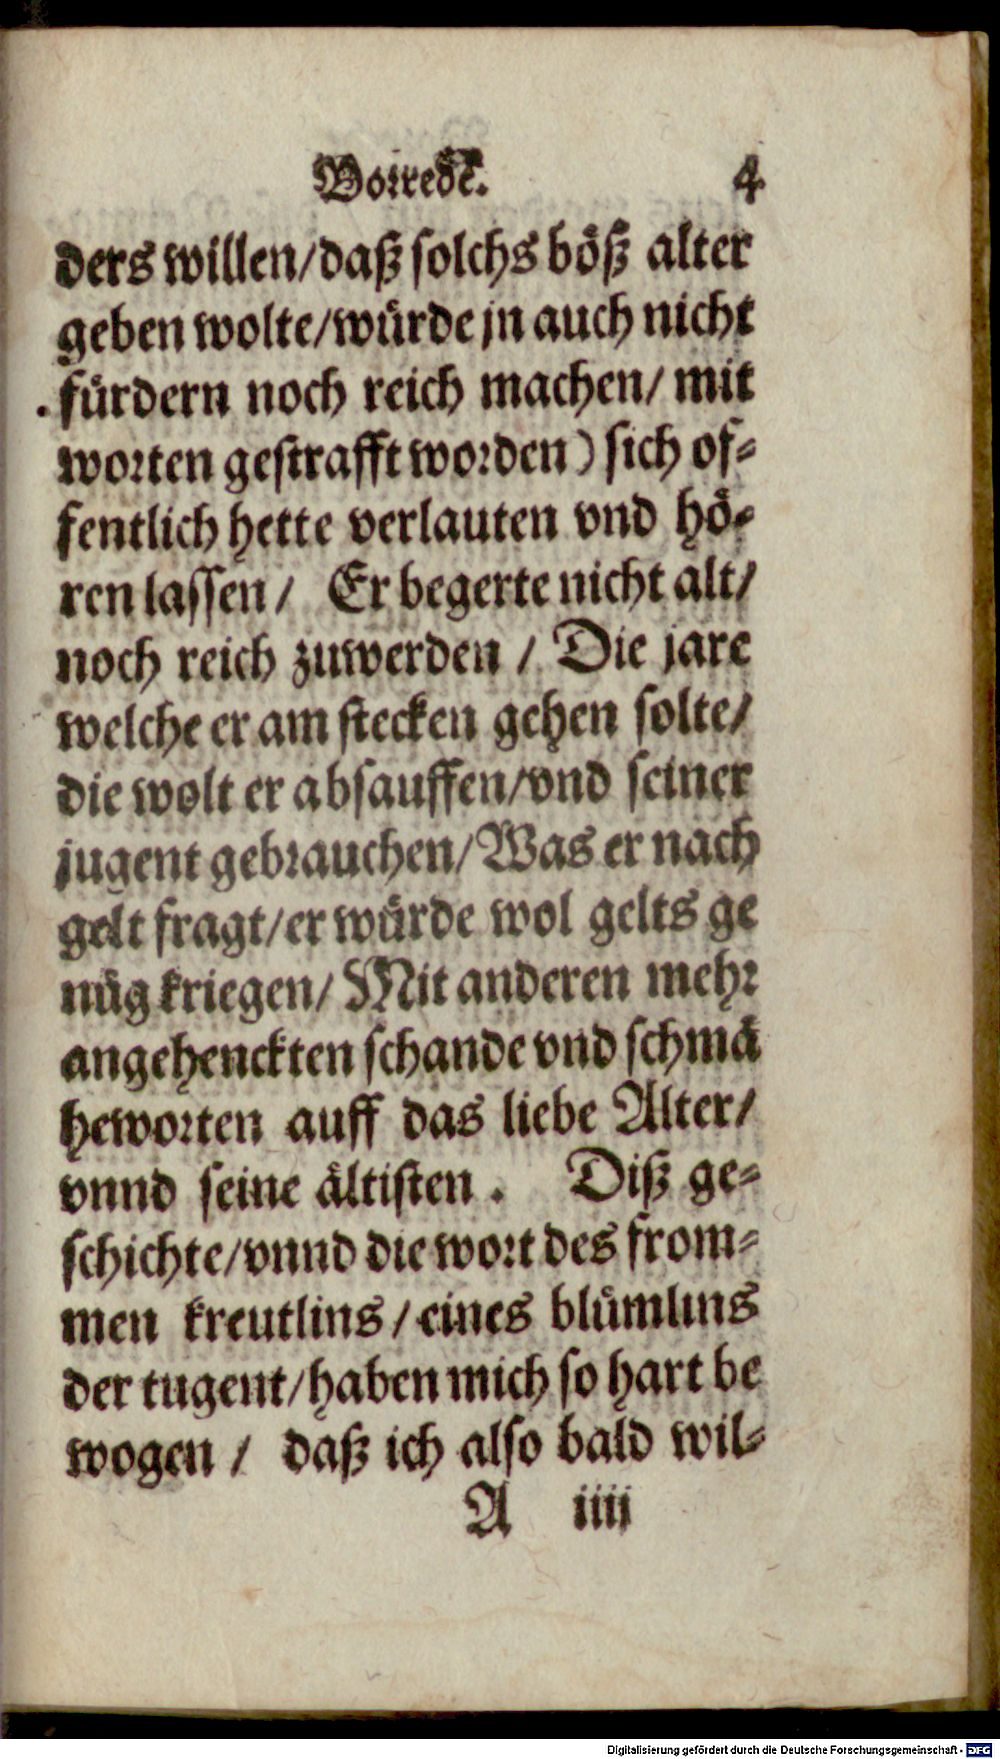 Vorrede. 4
ders willen/daß solchs böß alter
geben wolte/würde jn auch nicht
fürdern noch reich machen/ mit
worten gestrafft worden) sich of-
fentlich hette verlauten vnd hö-
ren lassen/ Er begerte nicht alt/
noch reich zuwerden / Die jare
welche er am stecken gehen solte/
die wolt er absauffen/vnd seiner
jugent gebrauchen/Was er nach
gelt fragt/er würde wol gelts ge
nüg kriegen/ Mit anderen mehr
angehenckten schande vnd schmä
heworten auff das liebe Alter/
vnnd seine ältisten . Diß ge-
schichte/vnnd die wort des from-
men kreutlins/eines blümlins
der tugent/haben mich so hart be
wogen / daß ich also bald wil-
A iiij
Digitalisierung gefördert durch die Deutsche Forschungsgemeinschaft - DFG